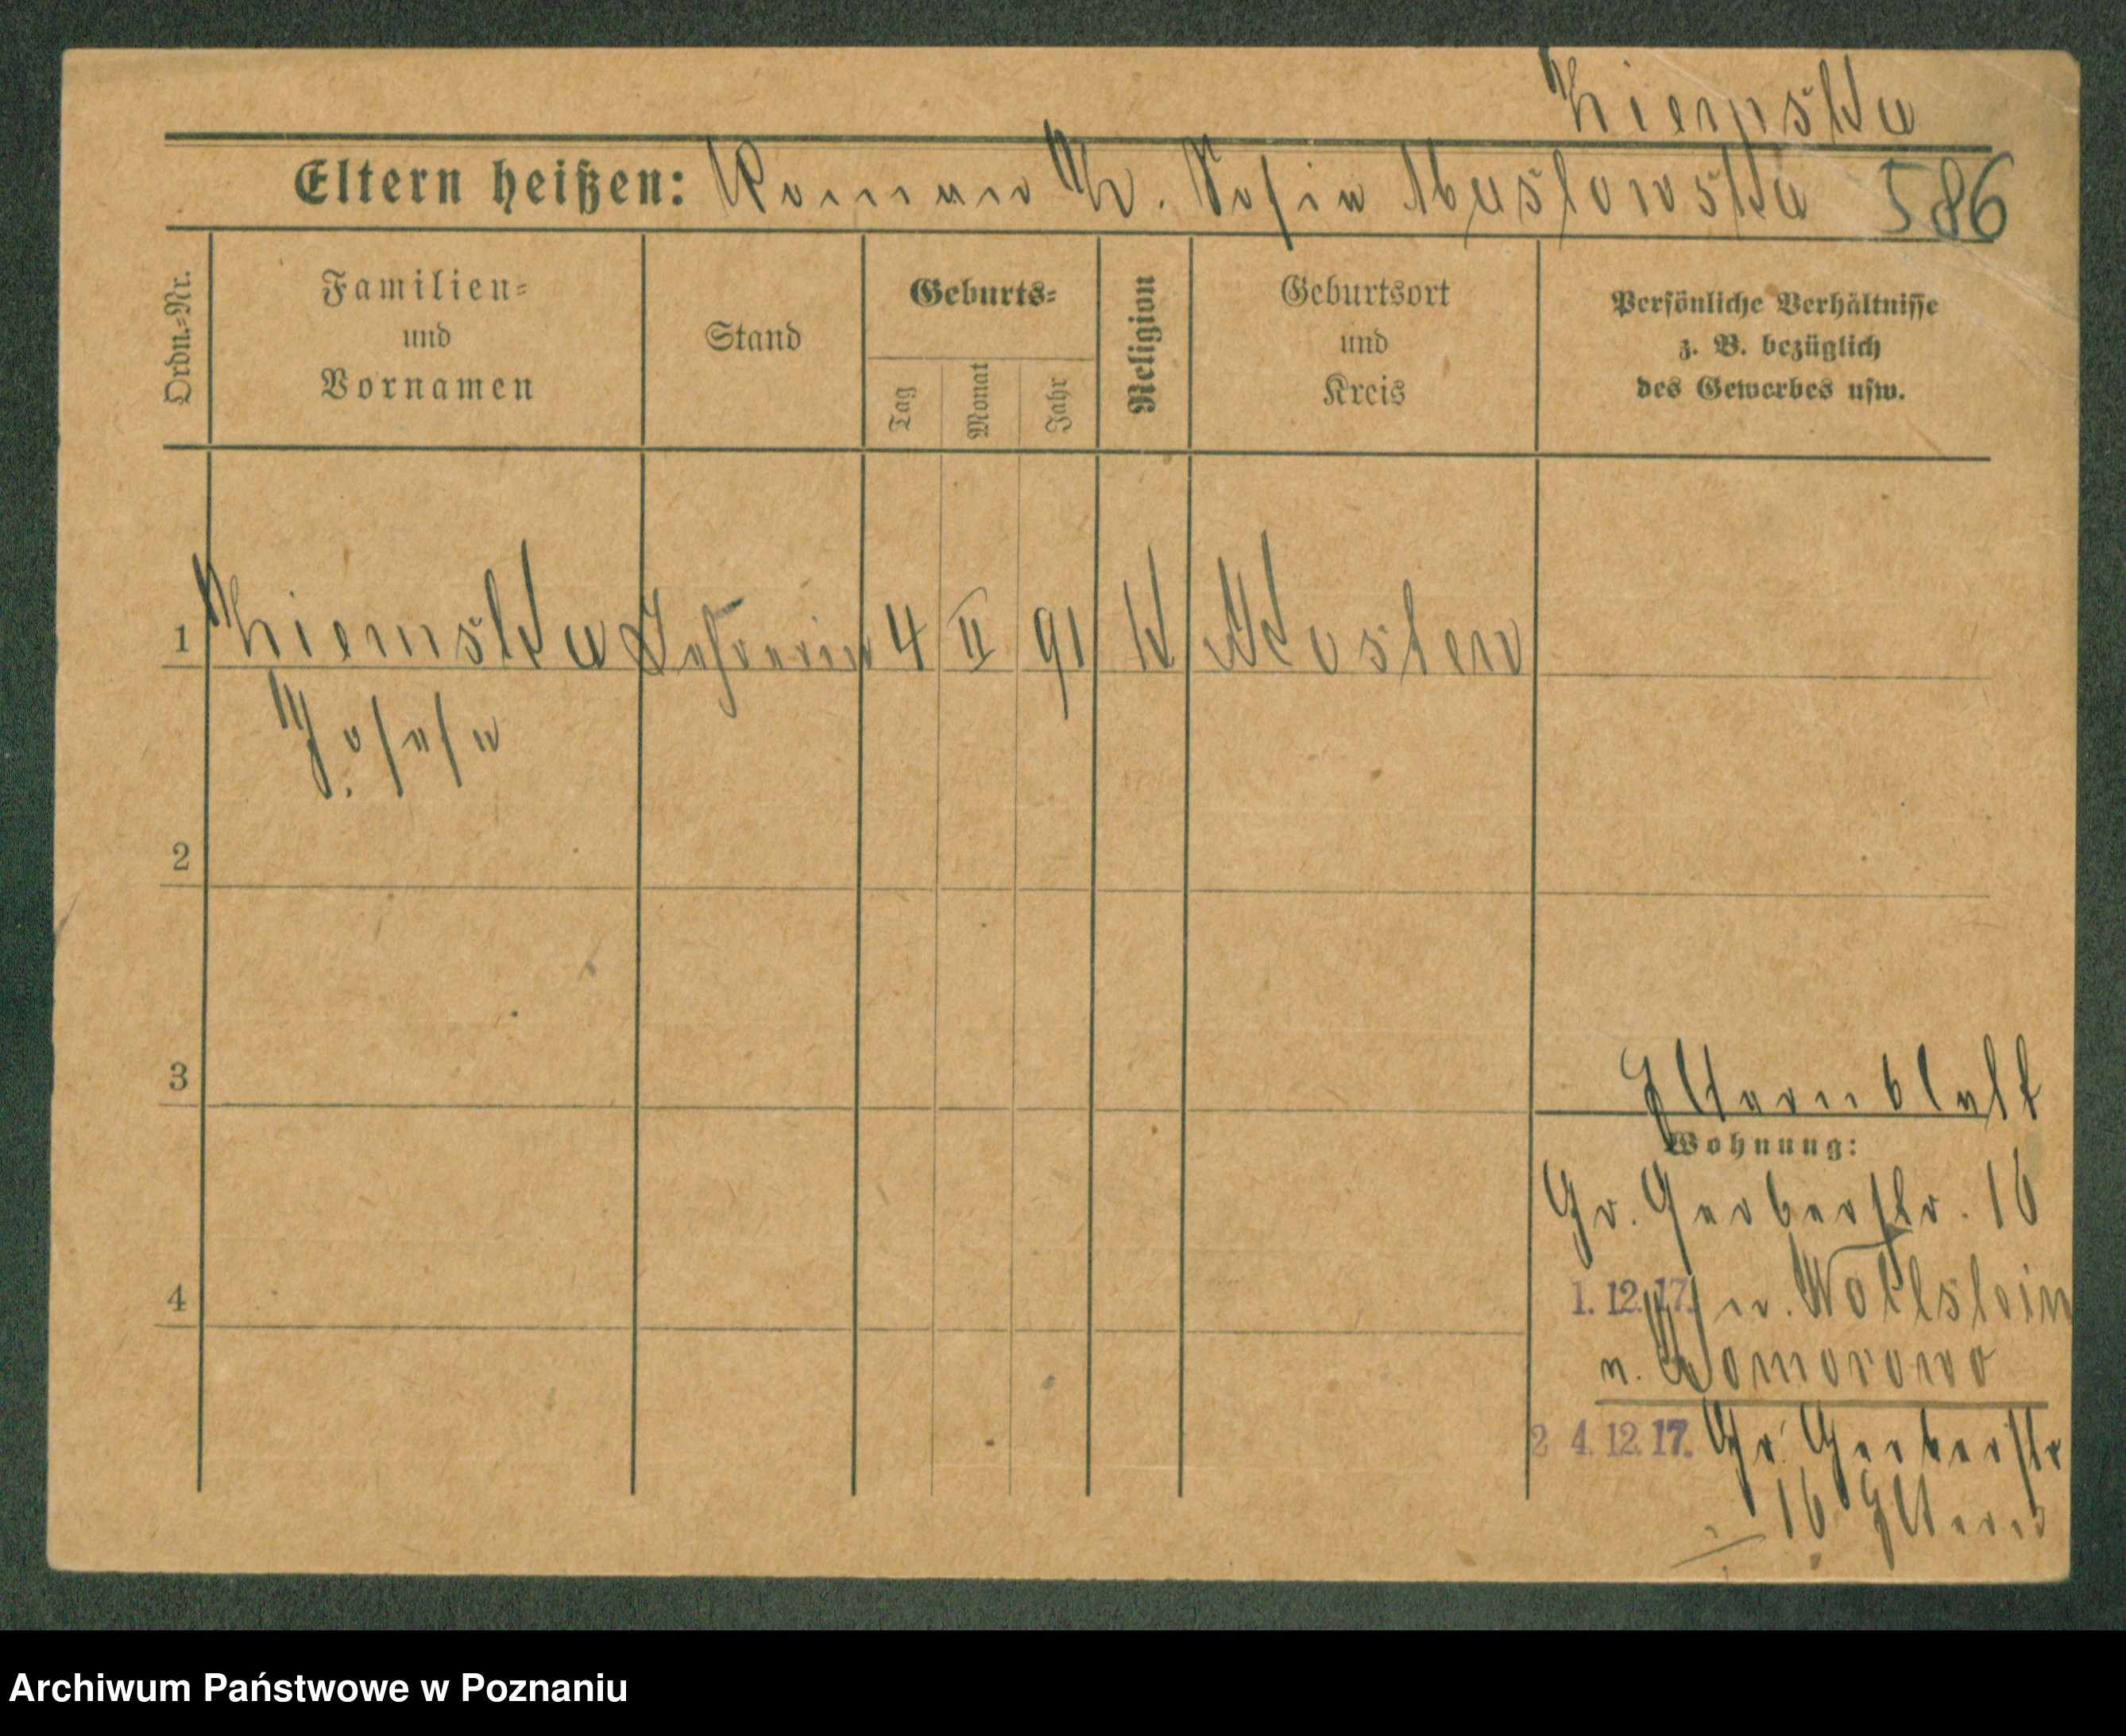 Ziemska
Eltern heißen: Roman Z. Sofia Maslowska 586
Ordn.-Nr.
Familien-
und
Vornamen
Stand
Geburts-
Tag
Monat
Jahr
Religion
Geburtsort
und
Kreis
Persönliche Verhältnisse
z. B. bezüglich
des Gewerbes usw.
1 Ziemska Lehrerin 4 II 91 k Kosten
Josefa
2
3
Elternblatt
Wohnung:
Gr. Gerberstr. 16
4
1. 12. 17. Wollstein
n. Komorowo
2 4. 12. 17. Gr. Gerberstr
16 Eltern
Archiwum Państwowe w Poznaniu